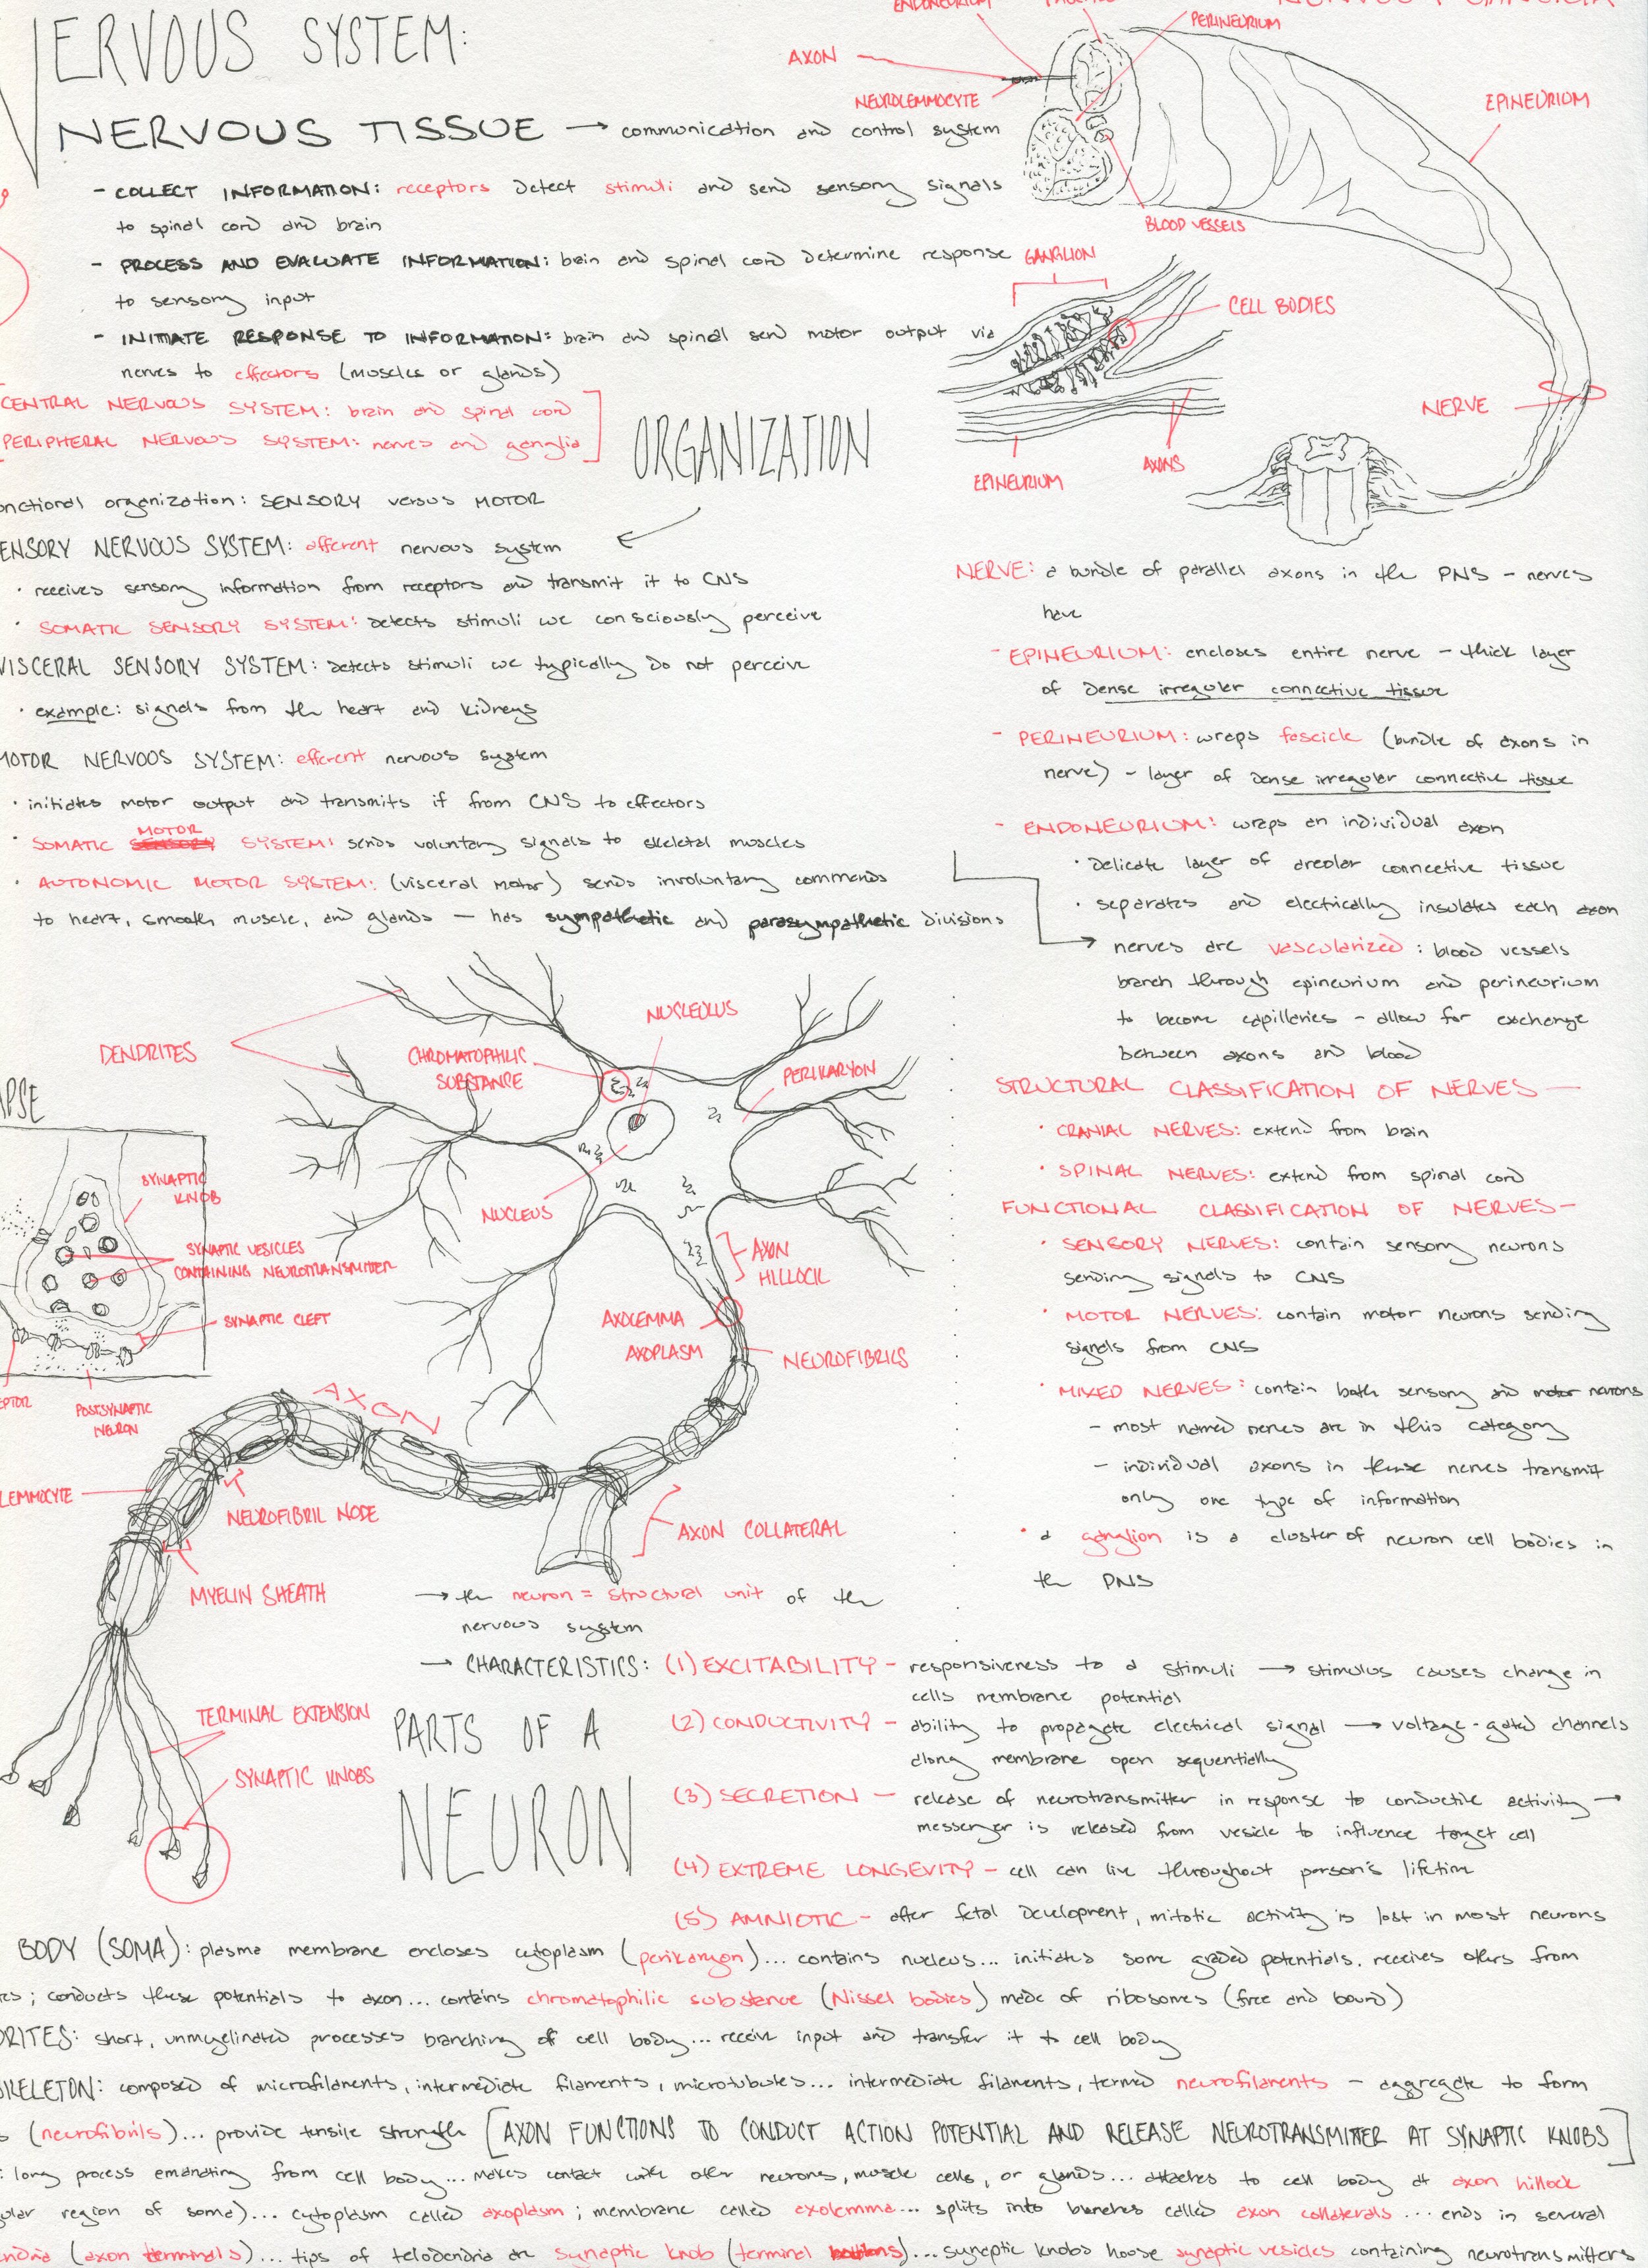 NERVOUS SYSTEM:
NERVOUS TISSUE → communication and control system
- COLLECT INFORMATION: receptors detect stimuli and send sensory signals
to spinal cord and brain
- PROCESS AND EVALUATE INFORMATION: brain and spinal cord determine response
to sensory input
- INITIATE RESPONSE TO INFORMATION: brain and spinal send motor output via
nerves to effectors (muscles or glands)
CENTRAL NERVOUS SYSTEM: brain and spinal cord
PERIPHERAL NERVOUS SYSTEM: nerves and ganglia
ORGANIZATION
nctional organization: SENSORY versus MOTOR
ENSORY NERVOUS SYSTEM: afferent nervous system
· receives sensory information from receptors and transmit it to CNS
· SOMATIC SENSORY SYSTEM: detects stimuli we consciously perceive
VISCERAL SENSORY SYSTEM: detects stimuli we typically do not perceive
· example: signals from the heart and kidneys
MOTOR NERVOUS SYSTEM: efferent nervous system
· initiates motor output and transmits if from CNS to effectors
· SOMATIC MOTOR SYSTEM: sends voluntary signals to skeletal muscles
· AUTONOMIC MOTOR SYSTEM: (visceral motor) sends involuntary commands
to heart, smooth muscle, and glands — has sympathetic and parasympathetic divisions
ENDONEURIUM
PERINEURIUM
AXON
NEUROLEMMOCYTE
EPINEURIUM
BLOOD VESSELS
GANGLION
CELL BODIES
NERVE
AXONS
EPINEURIUM
NERVE: a bundle of parallel axons in the PNS - nerves
have
- EPINEURIUM: encloses entire nerve - thick layer
of dense irregular connective tissue
- PERINEURIUM: wraps fascicle (bundle of axons in
nerve) - layer of dense irregular connective tissue
- ENDONEURIUM: wraps an individual axon
· delicate layer of areolar connective tissue
· separates and electrically insulates each axon
→ nerves are vascularized: blood vessels
branch through epineurium and perineurium
to become capillaries - allow for exchange
between axons and blood
STRUCTURAL CLASSIFICATION OF NERVES —
· CRANIAL NERVES: extend from brain
· SPINAL NERVES: extend from spinal cord
FUNCTIONAL CLASSIFICATION OF NERVES —
· SENSORY NERVES: contain sensory neurons
sending signals to CNS
· MOTOR NERVES: contain motor neurons sending
signals from CNS
· MIXED NERVES: contain both sensory and motor neurons
- most named nerves are in this category
- individual axons in these nerves transmit
only one type of information
· a ganglion is a cluster of neuron cell bodies in
the PNS
DENDRITES
CHROMATOPHILIC
SUBSTANCE
NUCLEOLUS
PERIKARYON
NUCLEUS
AXON
HILLOCK
AXOLEMMA
AXOPLASM
NEUROFIBRILS
APSE
SYNAPTIC
KNOB
SYNAPTIC VESICLES
CONTAINING NEUROTRANSMITTER
SYNAPTIC CLEFT
EPTOR
POSTSYNAPTIC
NEURON
AXON
LEMMOCYTE
NEUROFIBRIL NODE
AXON COLLATERAL
MYELIN SHEATH
TERMINAL EXTENSION
SYNAPTIC KNOBS
→ the neuron = structural unit of the
nervous system
PARTS OF A
NEURON
→ CHARACTERISTICS: (1) EXCITABILITY - responsiveness to a stimuli → stimulus causes change in
cells membrane potential
(2) CONDUCTIVITY - ability to propagate electrical signal → voltage-gated channels
along membrane open sequentially
(3) SECRETION - release of neurotransmitter in response to conductile activity →
messenger is released from vesicle to influence target cell
(4) EXTREME LONGEVITY - cell can live throughout person's lifetime
(5) AMNIOTIC - after fetal development, mitotic activity is lost in most neurons
BODY (SOMA): plasma membrane encloses cytoplasm (perikaryon)... contains nucleus... initiates some graded potentials. receives others from
es; conducts these potentials to axon... contains chromatophilic substance (Nissel bodies) made of ribosomes (free and bound)
DRITES: short, unmyelinated processes branching of cell body... receive input and transfer it to cell body
SKELETON: composed of microfilaments, intermediate filaments, microtubules... intermediate filaments, termed neurofilaments - aggregate to form
s (neurofibrils)... provide tensile strength [AXON FUNCTIONS TO CONDUCT ACTION POTENTIAL AND RELEASE NEUROTRANSMITTER AT SYNAPTIC KNOBS]
: long process emanating from cell body... makes contact with other neurons, muscle cells, or glands... attaches to cell body at axon hillock
ular region of soma)... cytoplasm called axoplasm; membrane called axolemma... splits into branches called axon collaterals... ends in several
endria (axon terminals)... tips of telodendria are synaptic knob (terminal buttons)... synaptic knobs house synaptic vesicles containing neurotransmitters